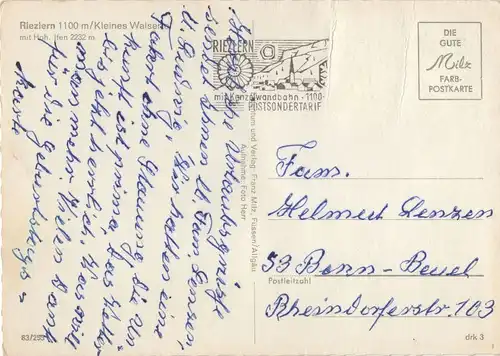 Riezlern 1100 m/Kleines Walsertal
mit Hoh. Ifen 2232 m
RIEZLERN
mit Kanzelwandbahn · 1100
POSTSONDERTARIF
DIE
GUTE
Milz
FARB-
POSTKARTE
Herzliche Urlaubsgrüße
senden Ihnen u. Fam. Lenzen,
u. Wir hatten eine
Fahrt ohne Stauung die Un-
kunft ist prima, das Wetter
ist jetzt herrlich. Was will
man mehr. Vielen Dank
für die Geburtstags =
karte
und Verlag: Franz Milz, Füssen/Allgäu
Aufnahme: Foto Herr
Fam.
Helmut Lenzen
53 Bonn - Beuel
Postleitzahl
Rheindorferstr. 103
83/253
drk 3